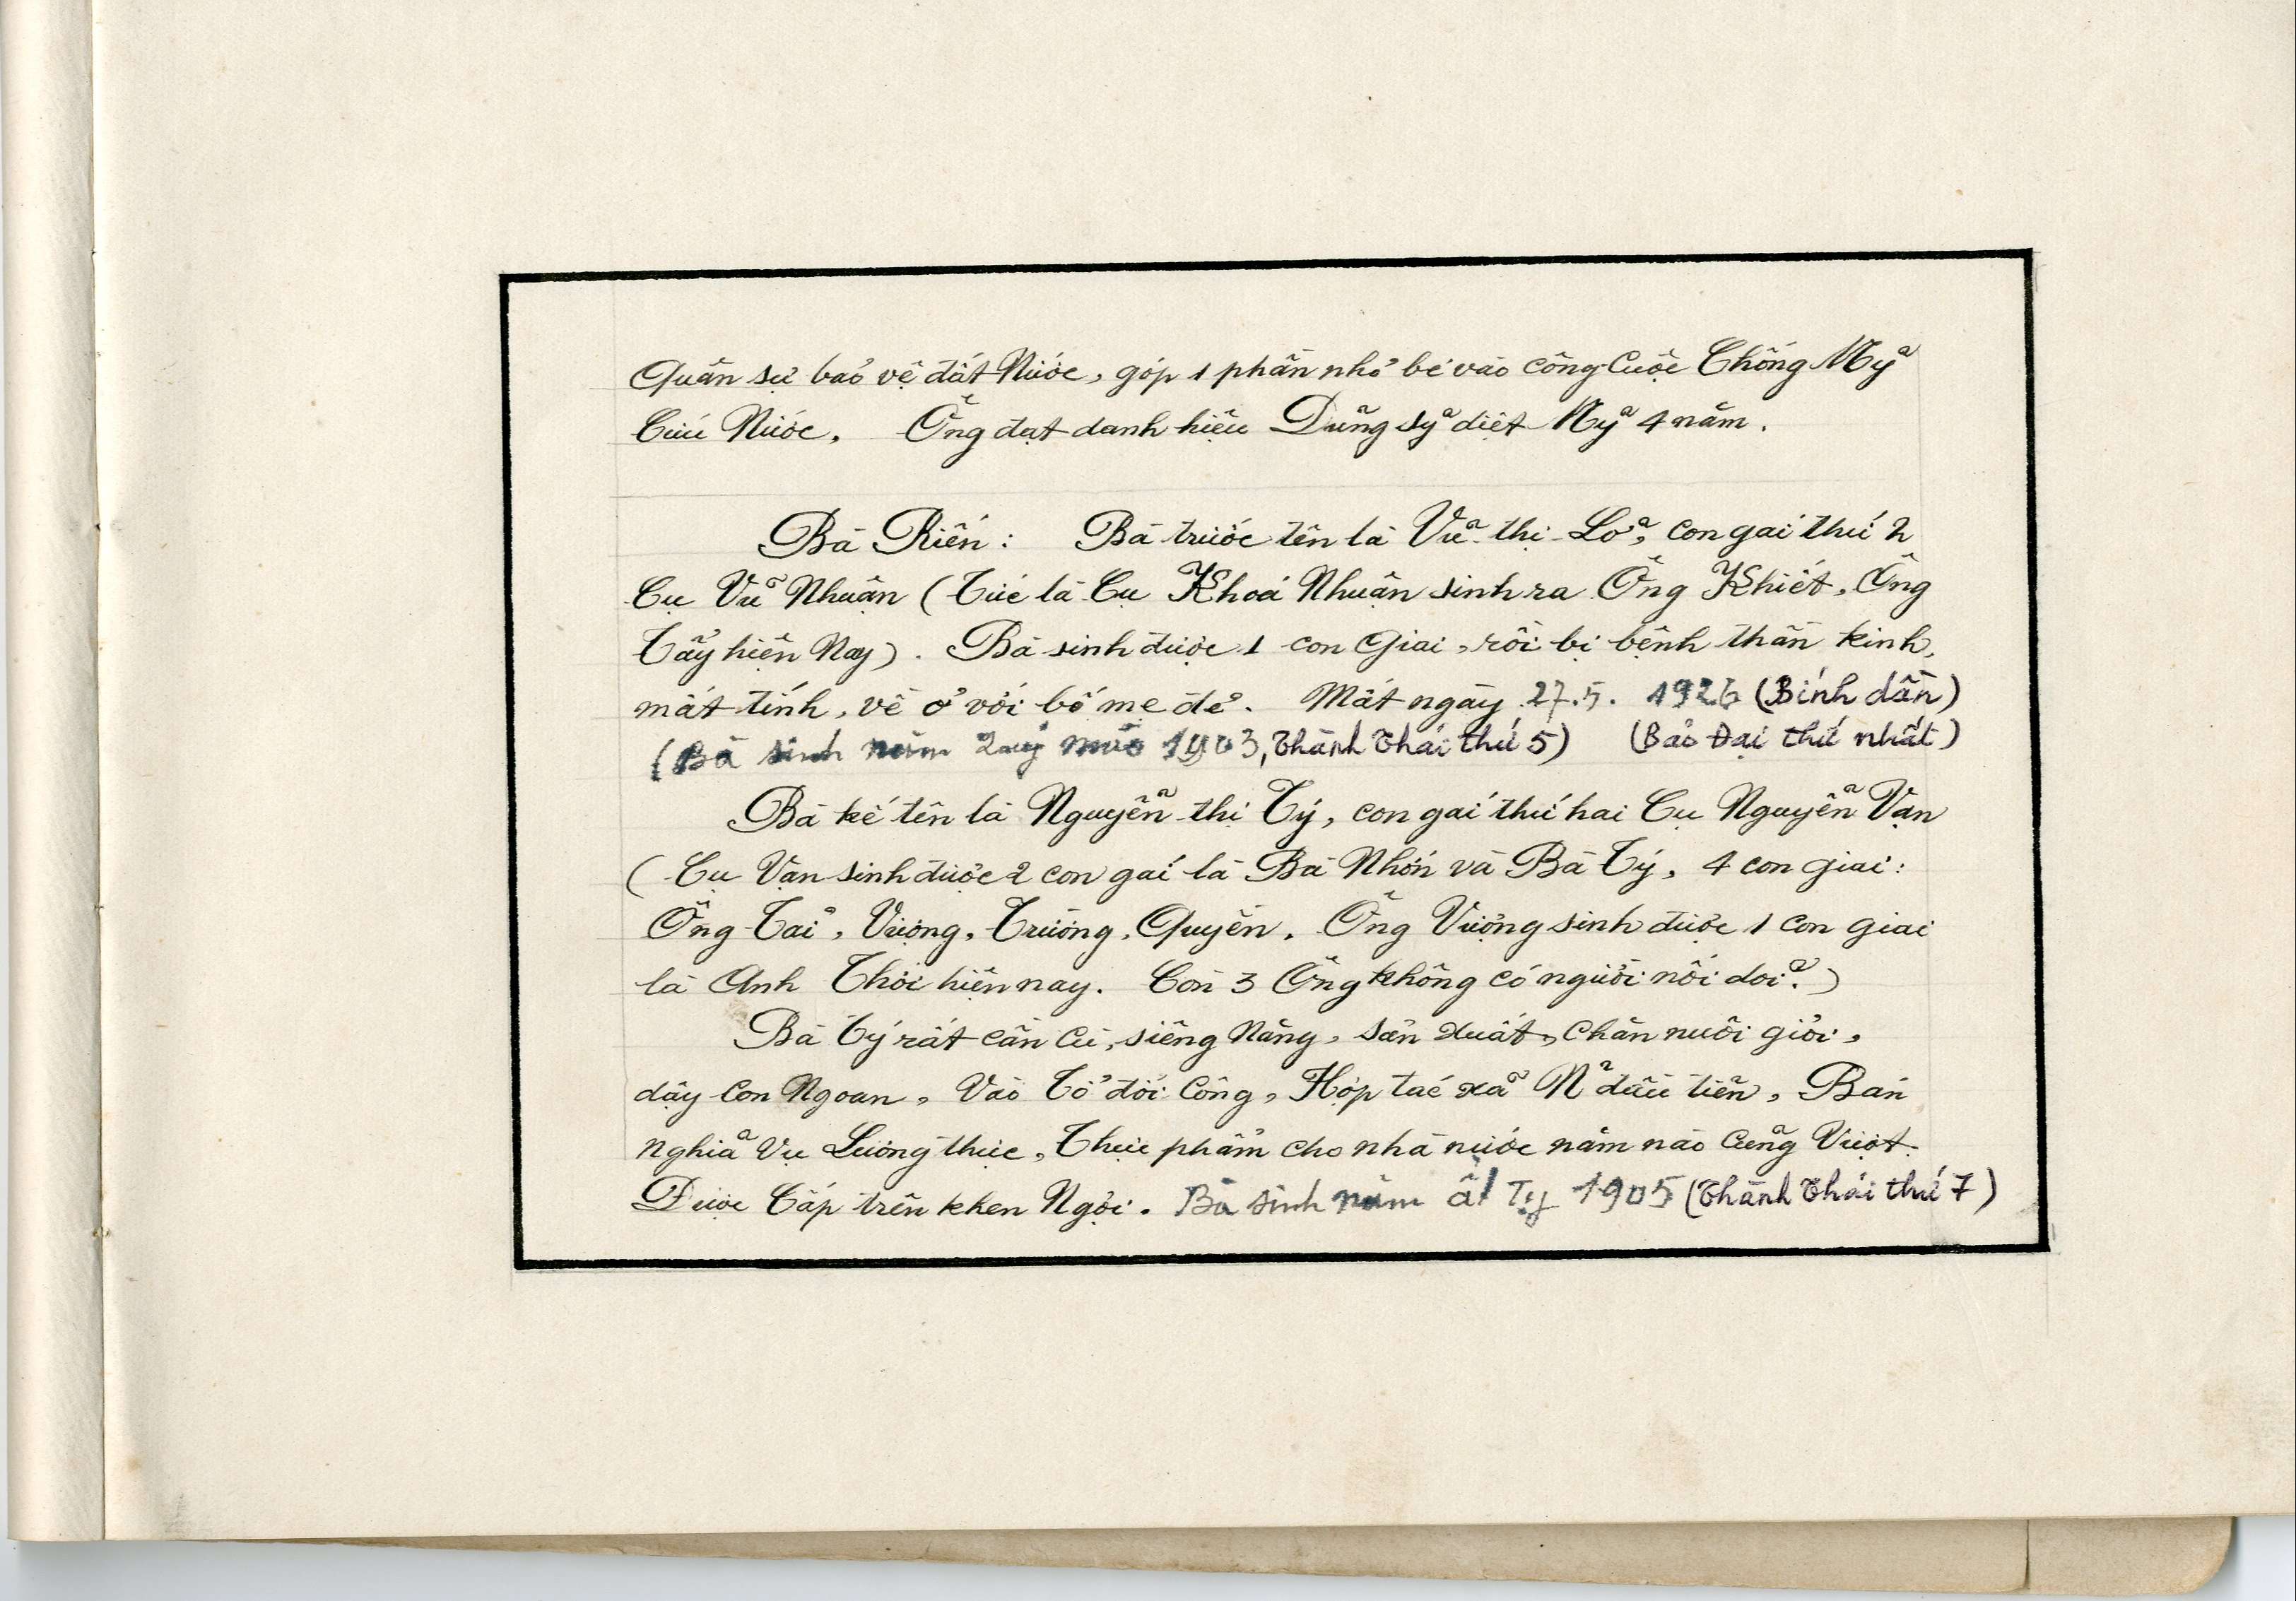 Quân sự bảo vệ đất Nước, góp 1 phần nhỏ bé vào công Cuộc Chống Mỹ
Cứu Nước. Ông đạt danh hiệu Dũng sỹ diệt Mỹ 4 năm.
Bà Riến: Bà trước tên là Vũ thị Lỡ, con gái thứ 2
Cụ Vũ Nhuận (Tức là Cụ Khoá Nhuận sinh ra Ông Khiết, Ông
Tẩy hiện Nay). Bà sinh được 1 con Giai, rồi bị bệnh thần kinh,
mất tính, về ở với bố mẹ đẻ. Mất ngày 27.5. 1926 (Bính dần)
(Bà sinh năm Quý mão 1903, Thành Thái thứ 5) (Bảo Đại thứ nhất)
Bà kế tên là Nguyễn thị Tý, con gái thứ hai Cụ Nguyễn Vạn
(Cụ Vạn sinh được 2 con gái là Bà Nhớn và Bà Tý, 4 con giai:
Ông Tải, Vượng, Trường, Quyền. Ông Vượng sinh được 1 con giai
là Anh Thời hiện nay. Còn 3 Ông không có người nối dõi.)
Bà Tý rất cần Cù, siêng Năng, sản xuất, Chăn nuôi giỏi,
dậy Con Ngoan, Vào Tổ đổi Công, Hợp tác xã N đầu tiên, Bán
Nghiã Vụ Lương thực, Thực phẩm cho nhà nước năm nào Cũng Vượt.
Được Cấp trên khen Ngợi. Bà sinh năm ất Tỵ 1905 (Thành Thái thứ 7)